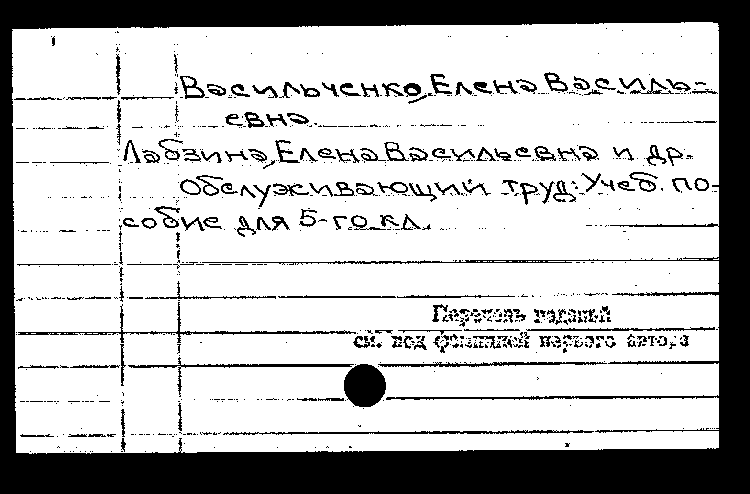 Васильченко, Елена Василь-
евна.
Лабзина, Елена Васильевна и др.
Обслуживающий труд: Учеб. по-
собие для 5-го кл.
Перечень изданий
см. под фамилией первого автора